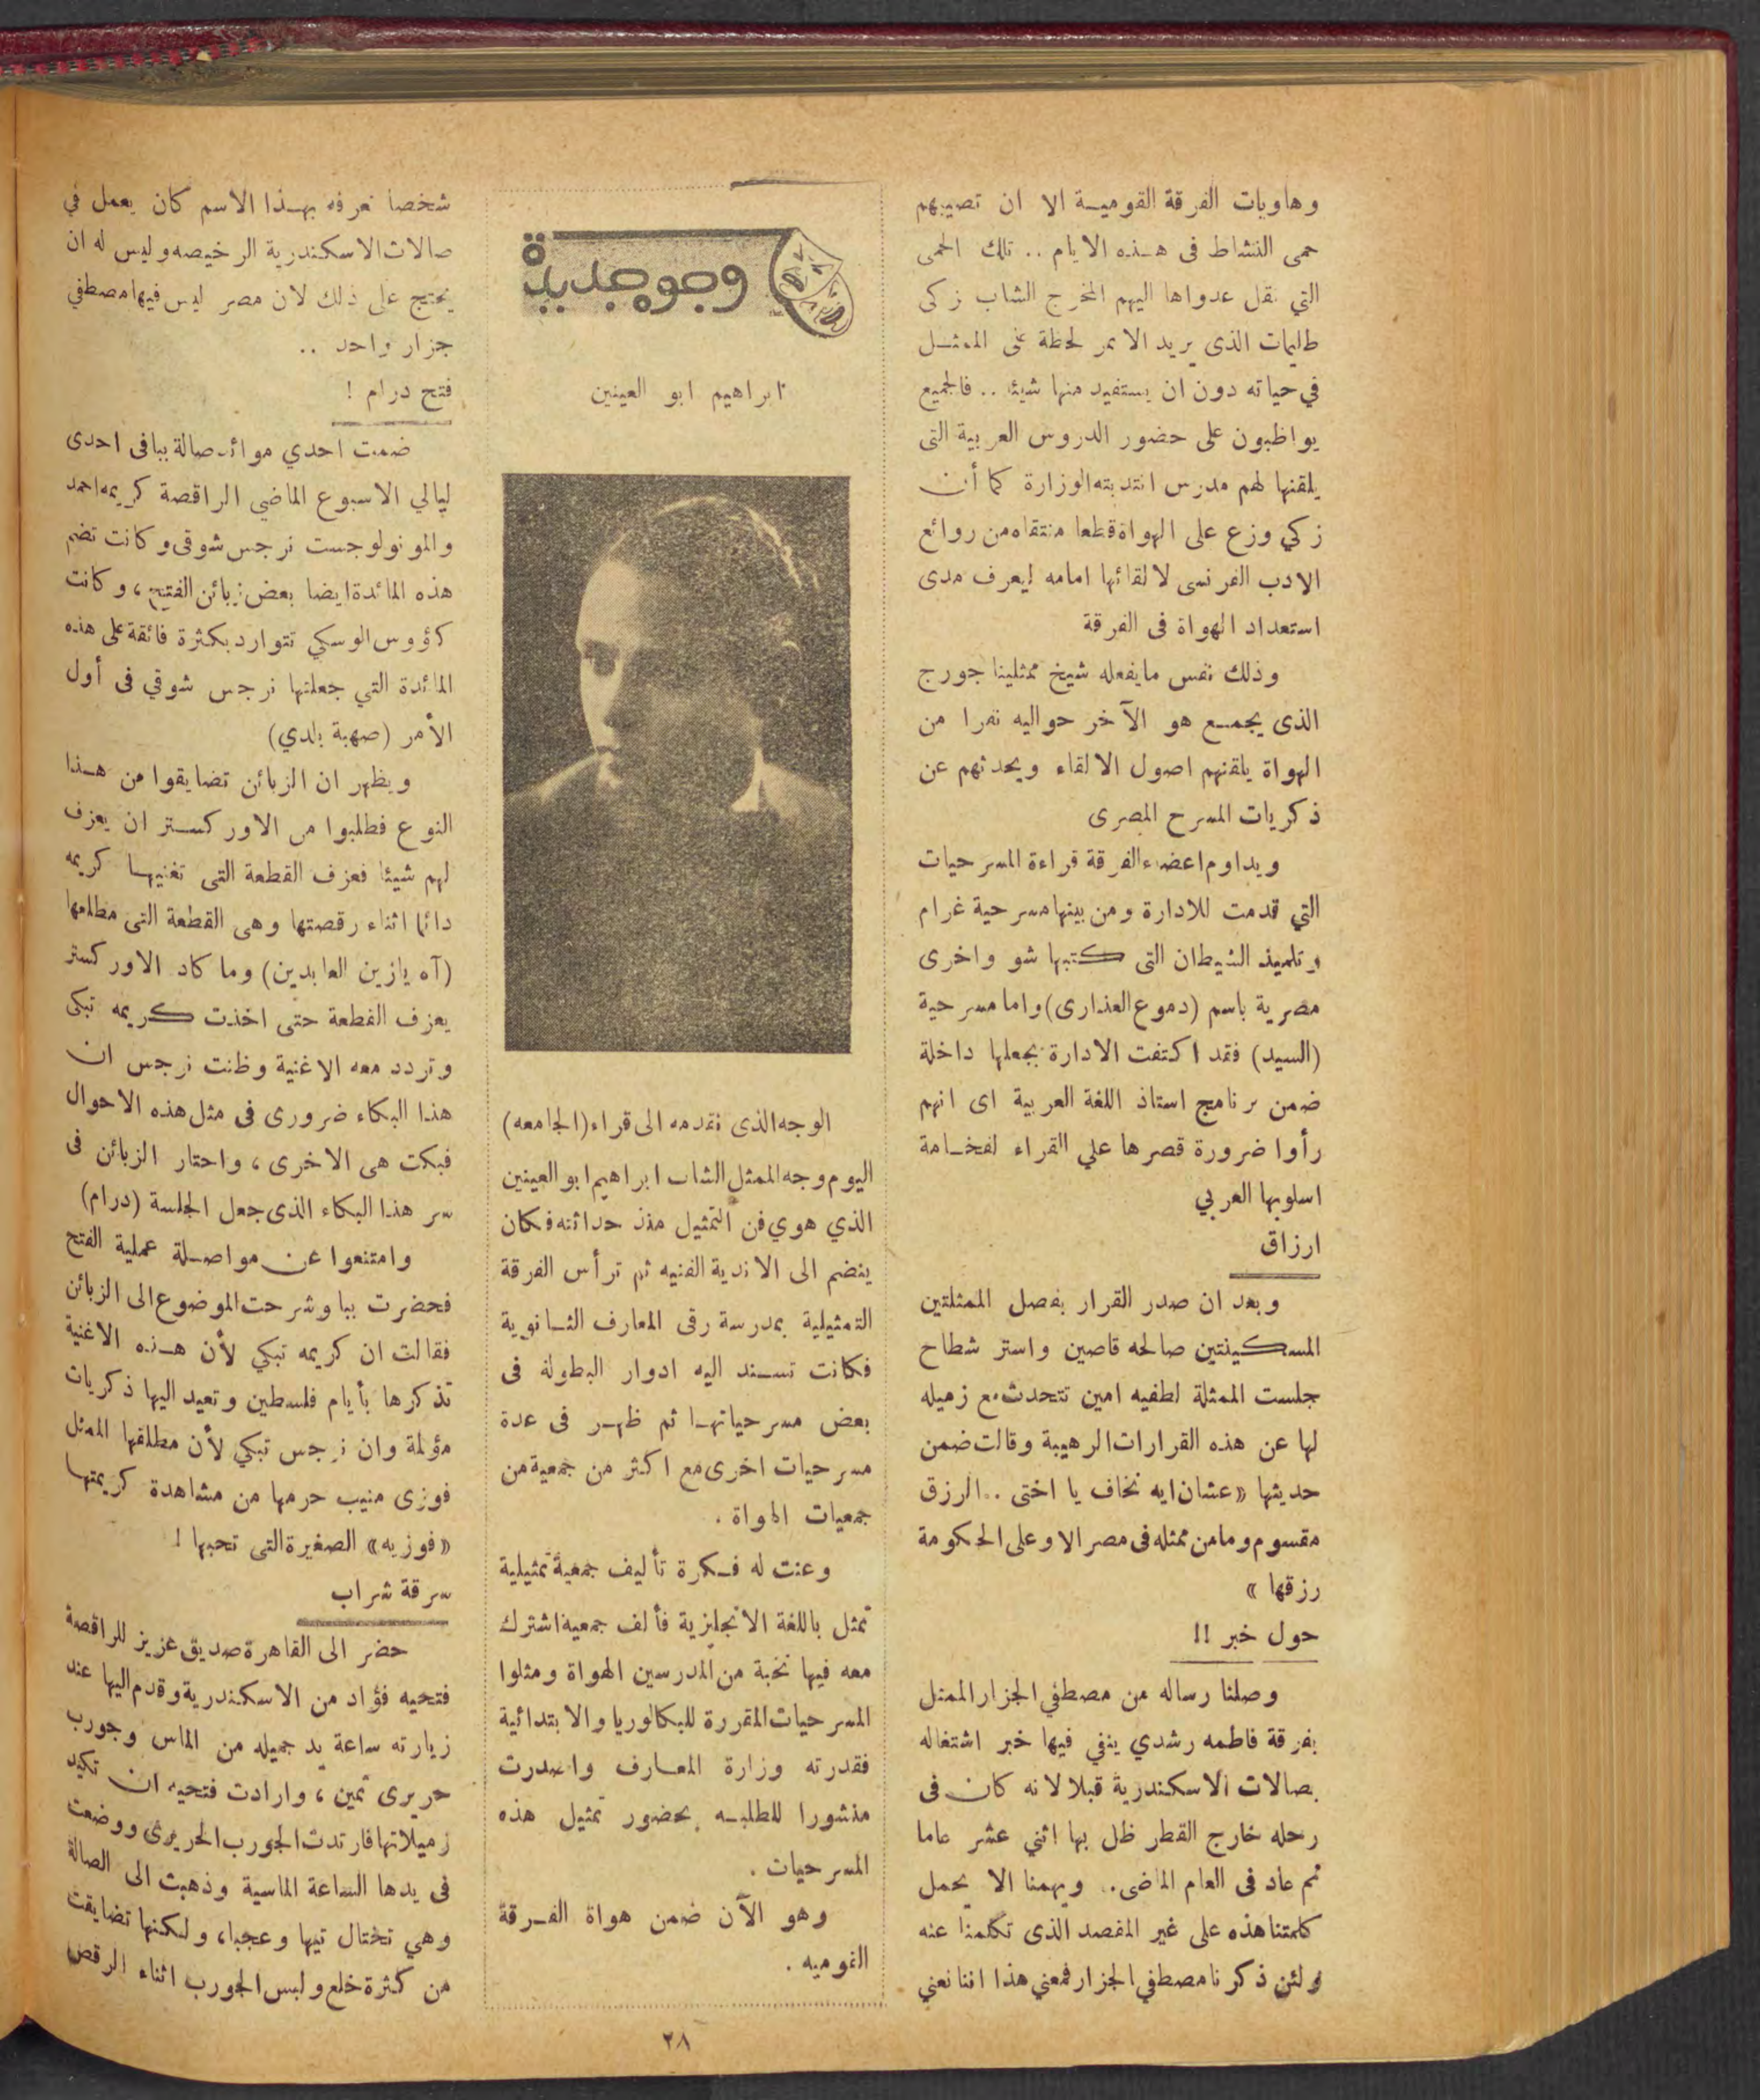 وهاويات الفرقة القومية الا ان تصيبهم
حمى النشاط فى هذه الايام .. تلك الحمى
التي نقل عدواها اليهم المخرج الشاب زكى
طليمات الذى يريد الا تمر لحظة على الممثل
في حياته دون ان يستفيد منها شيئا .. فالجميع
يواظبون على حضور الدروس العربية التى
يلقنها لهم مدرس انتدبته الوزارة كما أن
زكي وزع على الهواة قطعا منتقاه من روائع
الادب الفرنسى لالقائها امامه ليعرف مدى
استعداد الهواة فى الفرقة
وذلك نفس مايفعله شيخ ممثلينا جورج
الذى يجمع هو الآخر حواليه نفرا من
الهواة يلقنهم اصول الالقاء ويحدثهم عن
ذكريات المسرح المصرى
ويداوم اعضاء الفرقة قراءة المسرحيات
التي قدمت للادارة ومن بينها مسرحية غرام
وتلميذ الشيطان التى كتبها شو واخرى
مصرية باسم (دموع العذارى) واما مسرحية
(السيد) فقد اكتفت الادارة بجعلها داخلة
ضمن برنامج استاذ اللغة العربية اى انهم
رأوا ضرورة قصرها علي القراء لفخامة
اسلوبها العربي
ارزاق
وبعد ان صدر القرار بفصل الممثلتين
المسكينتين صالحه قاصين واستر شطاح
جلست الممثلة لطفيه امين تتحدث مع زميله
لها عن هذه القرارات الرهيبة وقالت ضمن
حديثها «عشان ايه نخاف يا اختى .. الرزق
مقسوم ومامن ممثله فى مصر الا وعلى الحكومة
رزقها »
حول خبر !!
وصلنا رساله من مصطفي الجزار الممثل
بفرقة فاطمه رشدي ينفي فيها خبر اشتغاله
بصالات الاسكندرية قبلا لانه كان فى
رحله خارج القطر ظل بها اثني عشر عاما
ثم عاد فى العام الماضى .. ويهمنا الا يحمل
كلمتنا هذه على غير المقصد الذى تكلمنا عنه
ولئن ذكرنا مصطفي الجزار فمعني هذا اننا نعني
وجوه جديدة
ابراهيم ابو العينين
الوجه الذى نقدمه الى قراء (الجامعه)
اليوم وجه الممثل الشاب ابراهيم ابو العينين
الذي هوي فن التمثيل منذ حداثته فكان
ينضم الى الاندية الفنيه ثم ترأس الفرقة
التمثيلية بمدرسة رقى المعارف الثانوية
فكانت تسند اليه ادوار البطولة فى
بعض مسرحياتها ثم ظهر فى عدة
مسرحيات اخرى مع اكثر من جمعية من
جمعيات الهواة .
وعنت له فكرة تأليف جمعية تمثيلية
تمثل باللغة الانجليزية فألف جمعية اشترك
معه فيها نخبة من المدرسين الهواة ومثلوا
المسرحيات المقررة للبكالوريا والابتدائية
فقدرته وزارة المعارف واصدرت
منشورا للطلبه بحضور تمثيل هذه
المسرحيات .
وهو الآن ضمن هواة الفرقة
القوميه .
شخصا نعرفه بهذا الاسم كان يعمل في
صالات الاسكندرية الرخيصه وليس له ان
يحتج على ذلك لان مصر ليس فيها مصطفي
جزار واحد ..
فتح درام !
ضمت احدي موائد صالة ببا فى احدى
ليالي الاسبوع الماضي الراقصة كريمه احمد
والمونولوجست نرجس شوقى وكانت تضم
هذه المائدة ايضا بعض زبائن الفتح ، وكانت
كؤوس الوسكي تتوارد بكثرة فائقة على هذه
المائدة التي جعلتها نرجس شوقي فى أول
الأمر (صهبة بلدي)
ويظهر ان الزبائن تضايقوا من هذا
النوع فطلبوا من الاوركستر ان يعزف
لهم شيئا فعزف القطعة التى تغنيها كريمه
دائما اثناء رقصتها وهى القطعة التى مطلعها
(آه يازين العابدين) وما كاد الاوركستر
يعزف القطعة حتى اخذت كريمه تبكى
وتردد معه الاغنية وظنت نرجس ان
هذا البكاء ضرورى فى مثل هذه الاحوال
فبكت هى الاخرى ، واحتار الزبائن فى
سر هذا البكاء الذى جعل الجلسة (درام)
وامتنعوا عن مواصلة عملية الفتح
فحضرت ببا وشرحت الموضوع الى الزبائن
فقالت ان كريمه تبكي لأن هذه الاغنية
تذكرها بأيام فلسطين وتعيد اليها ذكريات
مؤلمة وان نرجس تبكي لأن مطلقها الممثل
فوزى منيب حرمها من مشاهدة كريمتها
«فوزيه» الصغيرة التى تحبها !
سرقة شراب
حضر الى القاهرة صديق عزيز للراقصة
فتحيه فؤاد من الاسكندرية وقدم اليها عند
زيارته ساعة يد جميله من الماس وجورب
حريرى ثمين ، وارادت فتحيه ان تكيد
زميلاتها فارتدت الجورب الحريرى ووضعت
فى يدها الساعة الماسية وذهبت الى الصالة
وهي تختال تيها وعجبا، ولكنها تضايقت
من كثرة خلع ولبس الجورب اثناء الرقص
٢٨